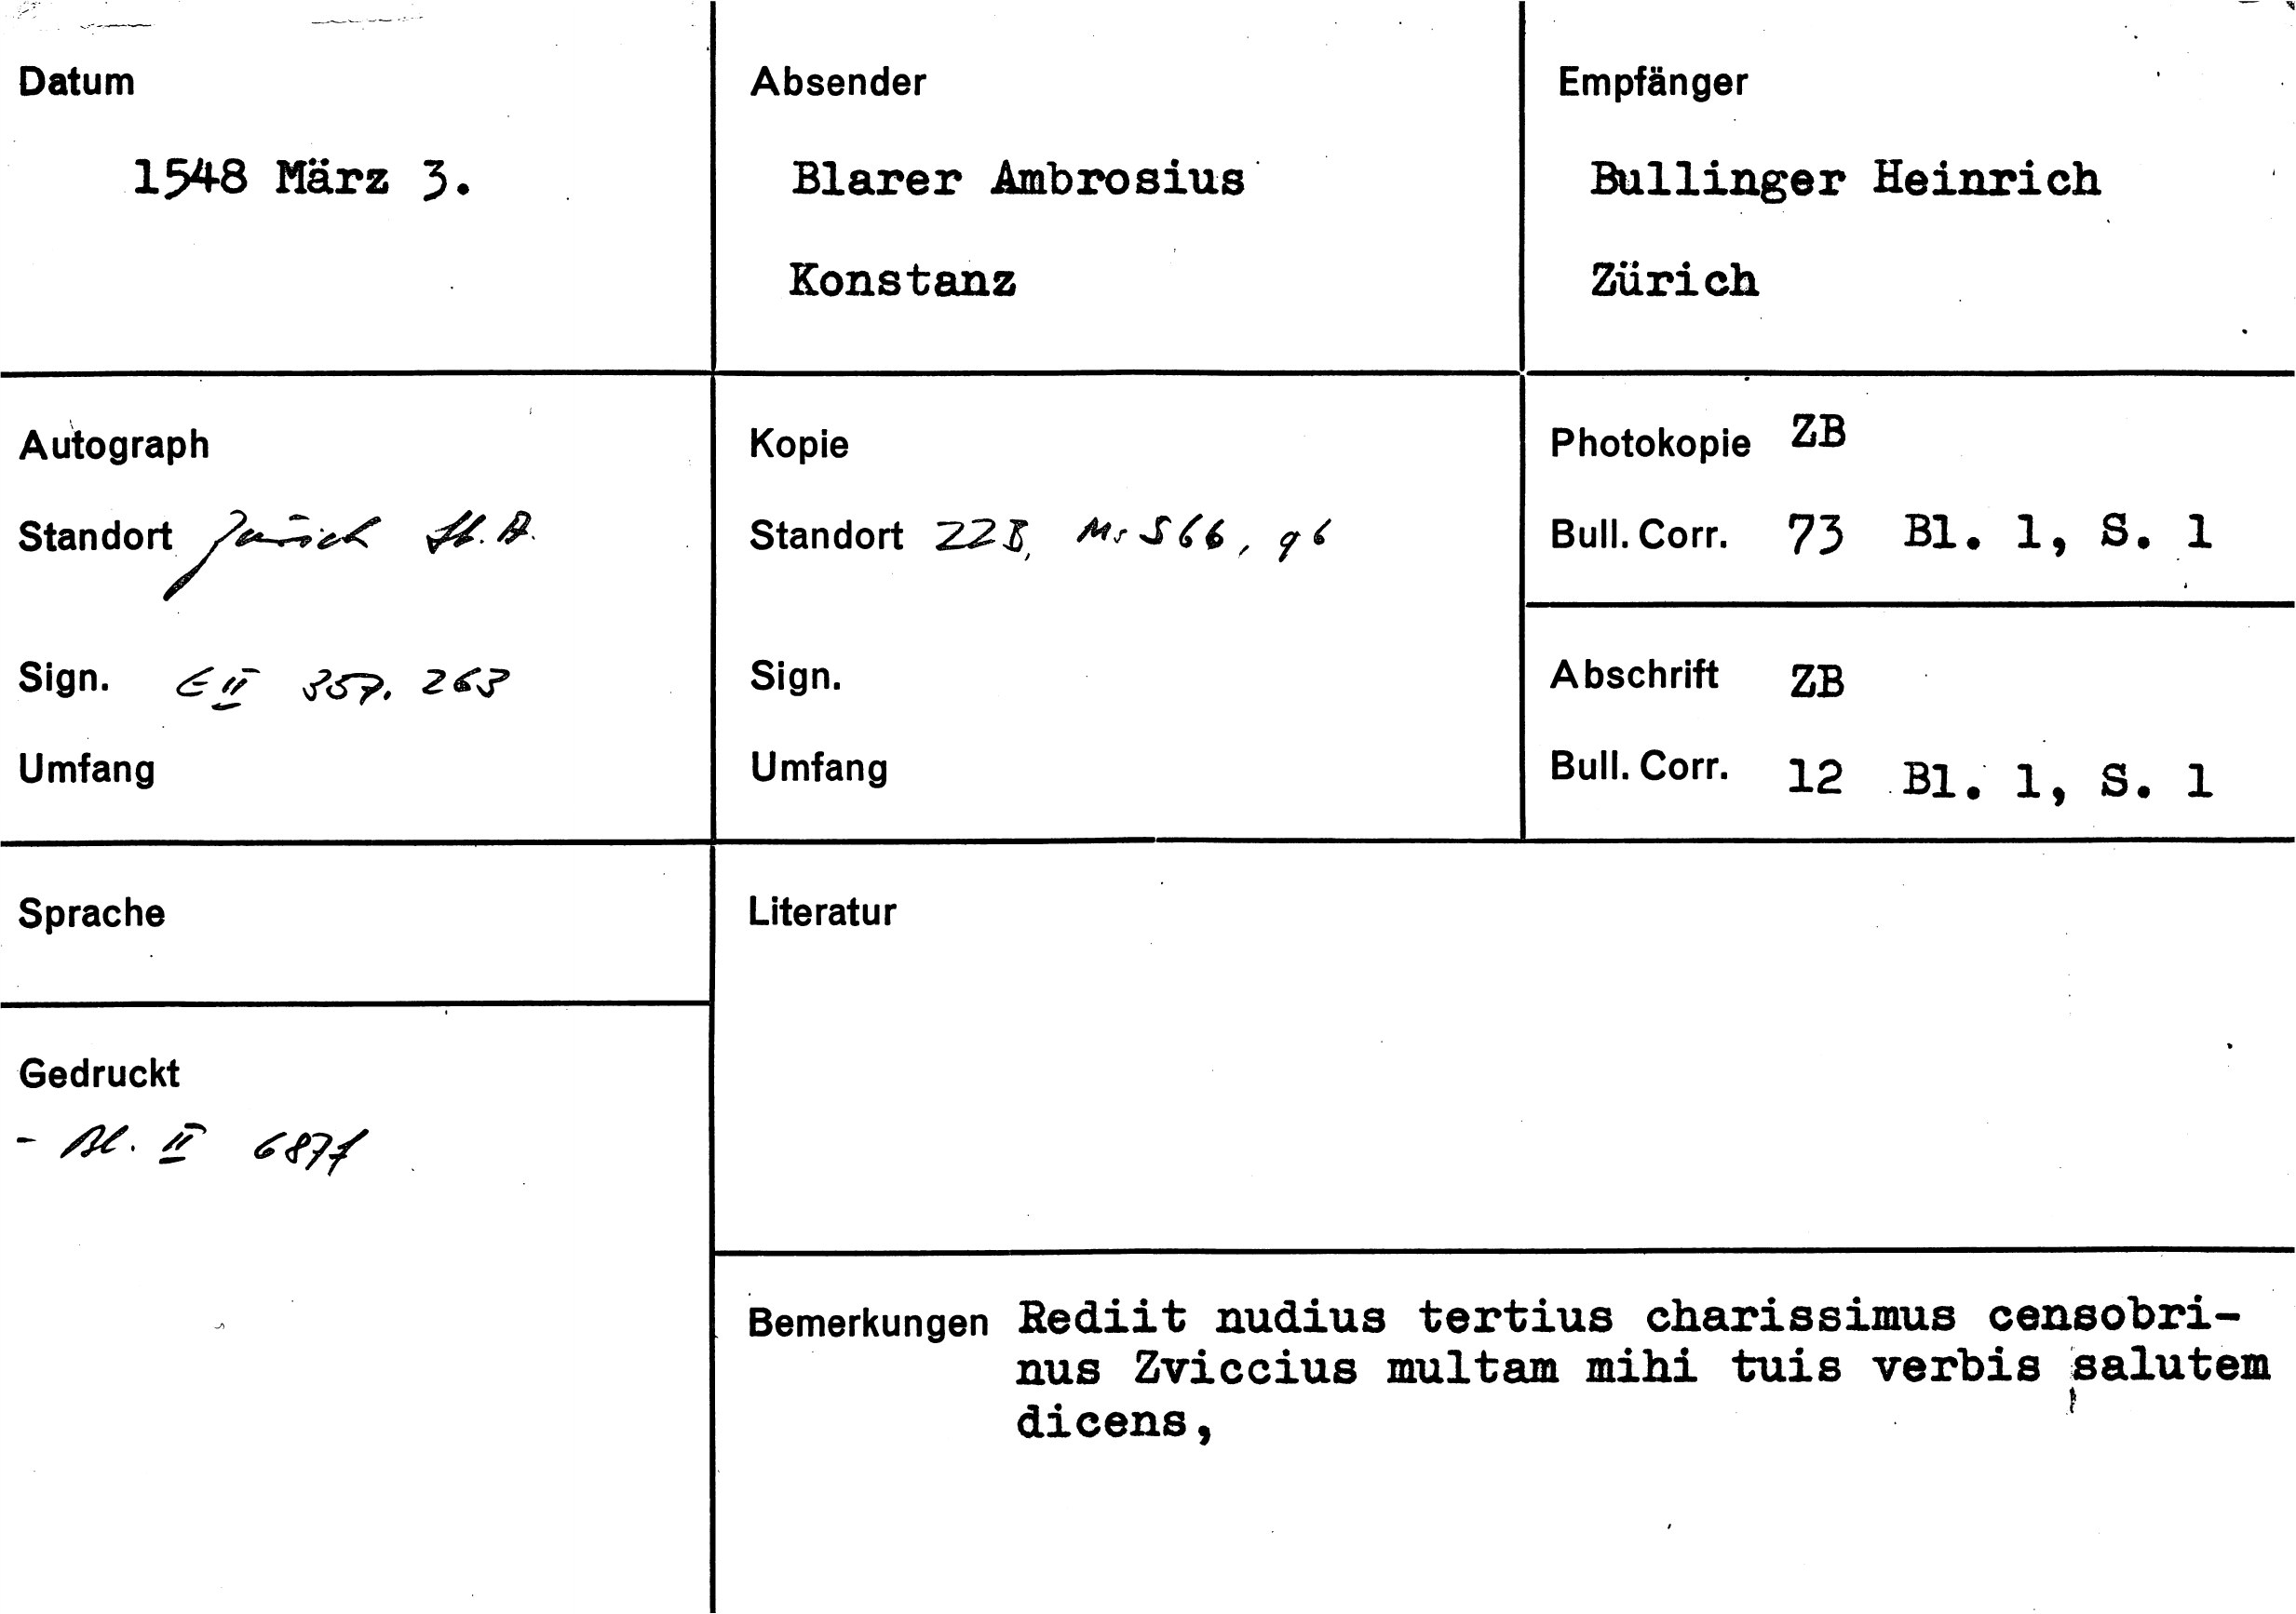 Datum
1548 März 3.
Absender
Blarer Ambrosius
Konstanz
Empfänger
Bullinger Heinrich
Zürich
Autograph
Standort Zürich St.A.
Sign. E II 357, 263
Umfang
Kopie
Standort ZZB, Ms S 66, 96
Sign.
Umfang
Photokopie ZB
Bull. Corr. 73 Bl. 1, S. 1
Abschrift ZB
Bull. Corr. 12 Bl. 1, S. 1
Sprache
Literatur
Gedruckt
- Bl. II 687f
Bemerkungen Rediit nudius tertius charissimus censobri-
nus Zviccius multam mihi tuis verbis salutem
dicens,